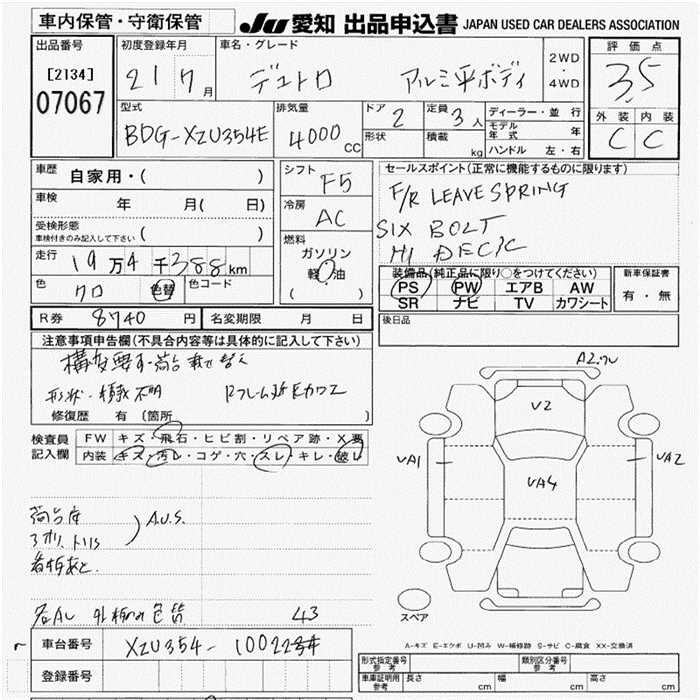 車内保管・守衛保管
JU 愛知 出品申込書 JAPAN USED CAR DEALERS ASSOCIATION
出品番号
[2134]
07067
初度登録年月
21 7月
車名・グレード
デュトロ アルミ平ボディ
2WD
・
4WD
評価点
3.5
外装 内装
C C
型式
BDG-XZU354E
排気量
4000 CC
ドア 2
形状
定員 3人
積載 kg
ディーラー・並行
モデル年式 年
ハンドル 左・右
車歴 自家用・( )
車検 年 月( 日)
受検形態
車検付きのみ記入して下さい ( )
走行 19万4千388km
色 クロ 色替 色コード
シフト F5
冷房 AC
燃料
ガソリン
軽油
( )
セールスポイント(正常に機能するものに限ります)
F/R LEAVE SPRING
SIX BOLT
HI DECK
装備品(純正品に限り○をつけてください)
PS PW エアB AW
SR ナビ TV カワシート
新車保証書
有・無
R券 8740円 名変期限 月 日
後日品
注意事項申告欄(不具合内容等は具体的に記入して下さい)
構変要す
形状・積載不明
Rフレーム
修復歴 有 (箇所 )
検査員記入欄
FW キズ・飛石・ヒビ割・リペア跡・X要
内装 キズ・汚レ・コゲ・穴・スレ・キレ・破レ
A.U.S.
看板あと
各AU 色替
43
A2
V2
VA1
VA2
VA4
スペア
A-キズ E-エクボ U-凹み W-補修跡 S-サビ C-腐食 XX-交換済
車台番号 XZU354-
登録番号
形式指定番号 参考
類別区分番号 参考
車庫証明用 参考 長さ cm 幅 cm 高さ cm